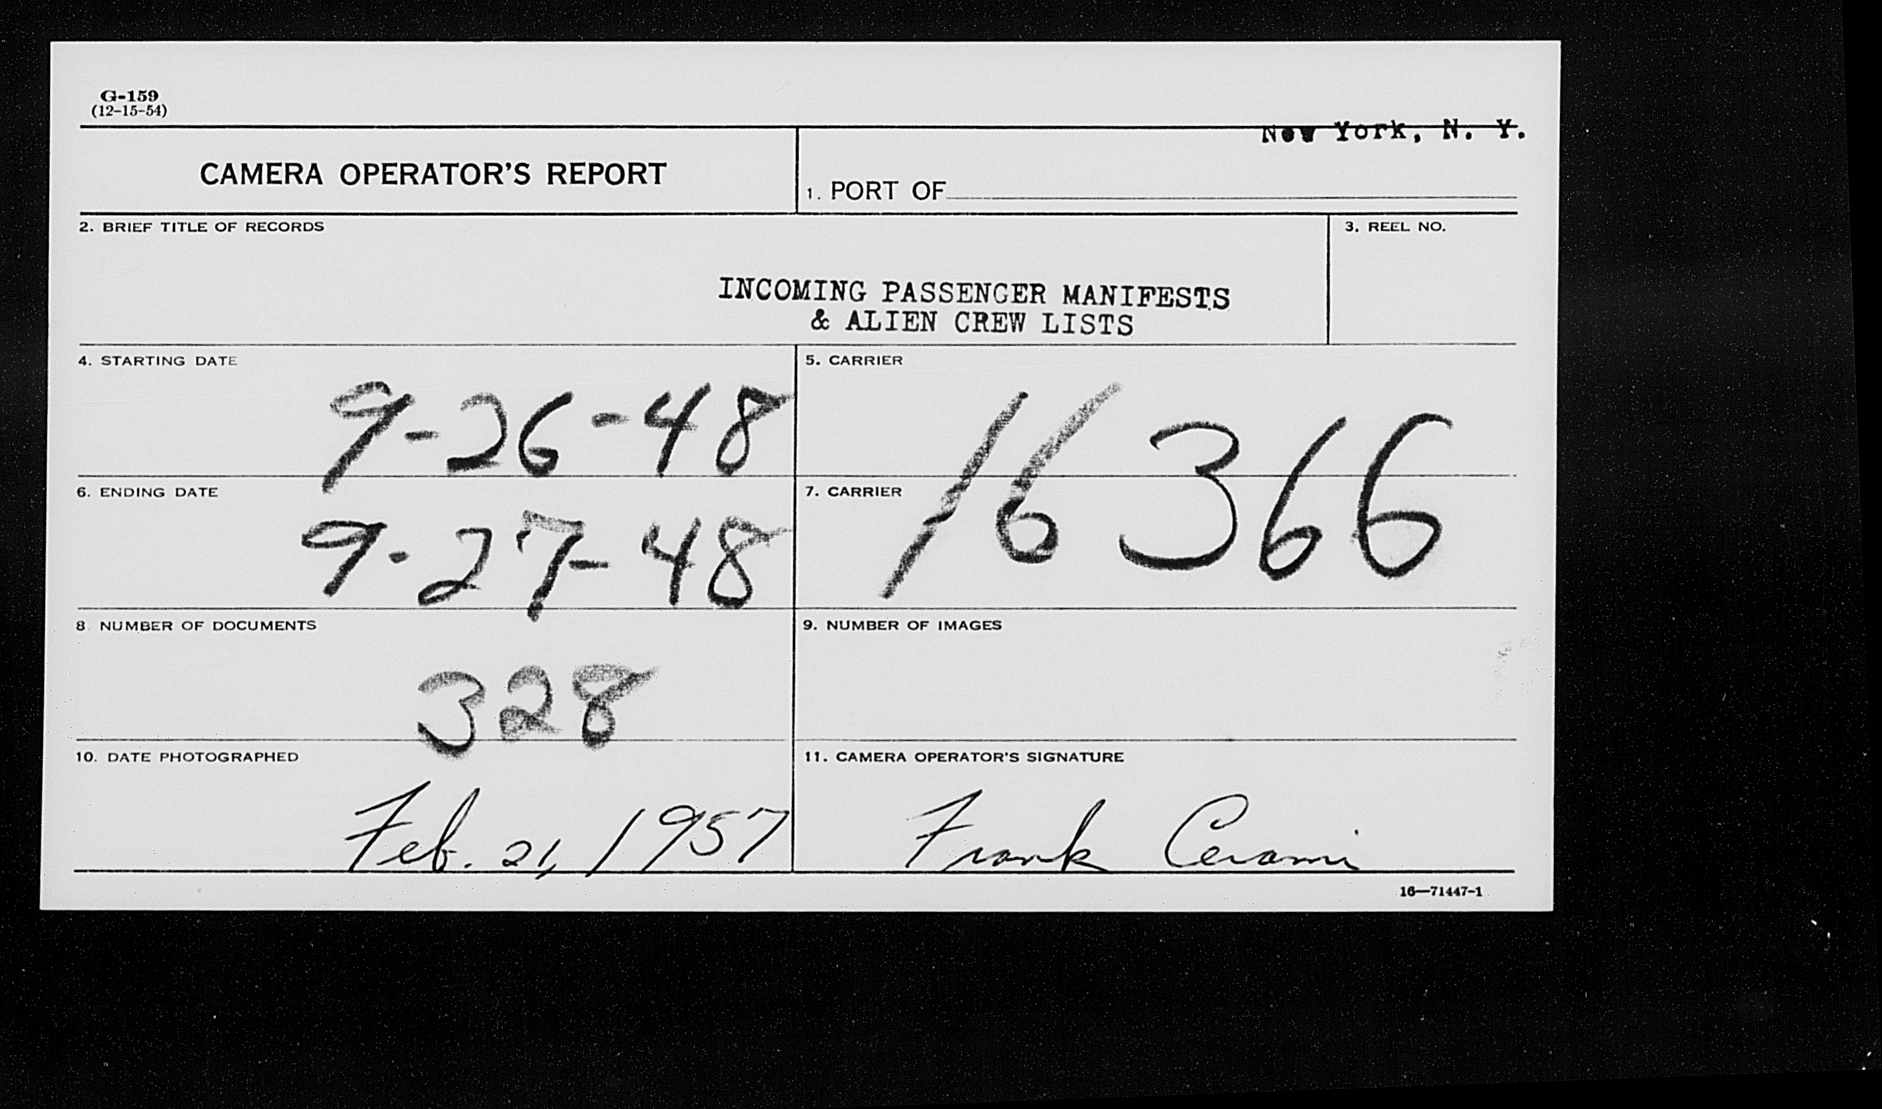 G-159
(12-15-54)
New York, N. Y.
CAMERA OPERATOR'S REPORT
1. PORT OF
2. BRIEF TITLE OF RECORDS
3. REEL NO.
INCOMING PASSENGER MANIFESTS
& ALIEN CREW LISTS
4. STARTING DATE
9-26-48
5. CARRIER
16366
6. ENDING DATE
9-27-48
7. CARRIER
8 NUMBER OF DOCUMENTS
328
9. NUMBER OF IMAGES
10. DATE PHOTOGRAPHED
Feb. 21, 1957
11. CAMERA OPERATOR'S SIGNATURE
Frank Cerami
16—71447-1